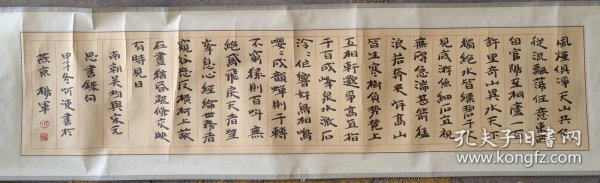 風煙俱淨天山共色
從流飄蕩任意東西
自富陽至桐廬一百
許里奇山異水天下
獨絕水皆縹碧千丈
見底游魚細石直視
無礙急湍甚箭猛
浪若奔夾岸高山
皆生寒樹負勢競上
互相軒邈爭高直指
千百成峰泉水激石
泠泠作響好鳥相鳴
嚶嚶成韻蟬則千轉
不窮猿則百叫無
絕鳶飛戾天者望
峯息心經綸世務者
窺谷忘反橫柯上蔽
在晝猶昏疏條交映
有時見日
南朝吳均與宋元
思書錄句
甲子冬 書於
燕京 楊軍
孔夫子旧书网
www.kongfz.com